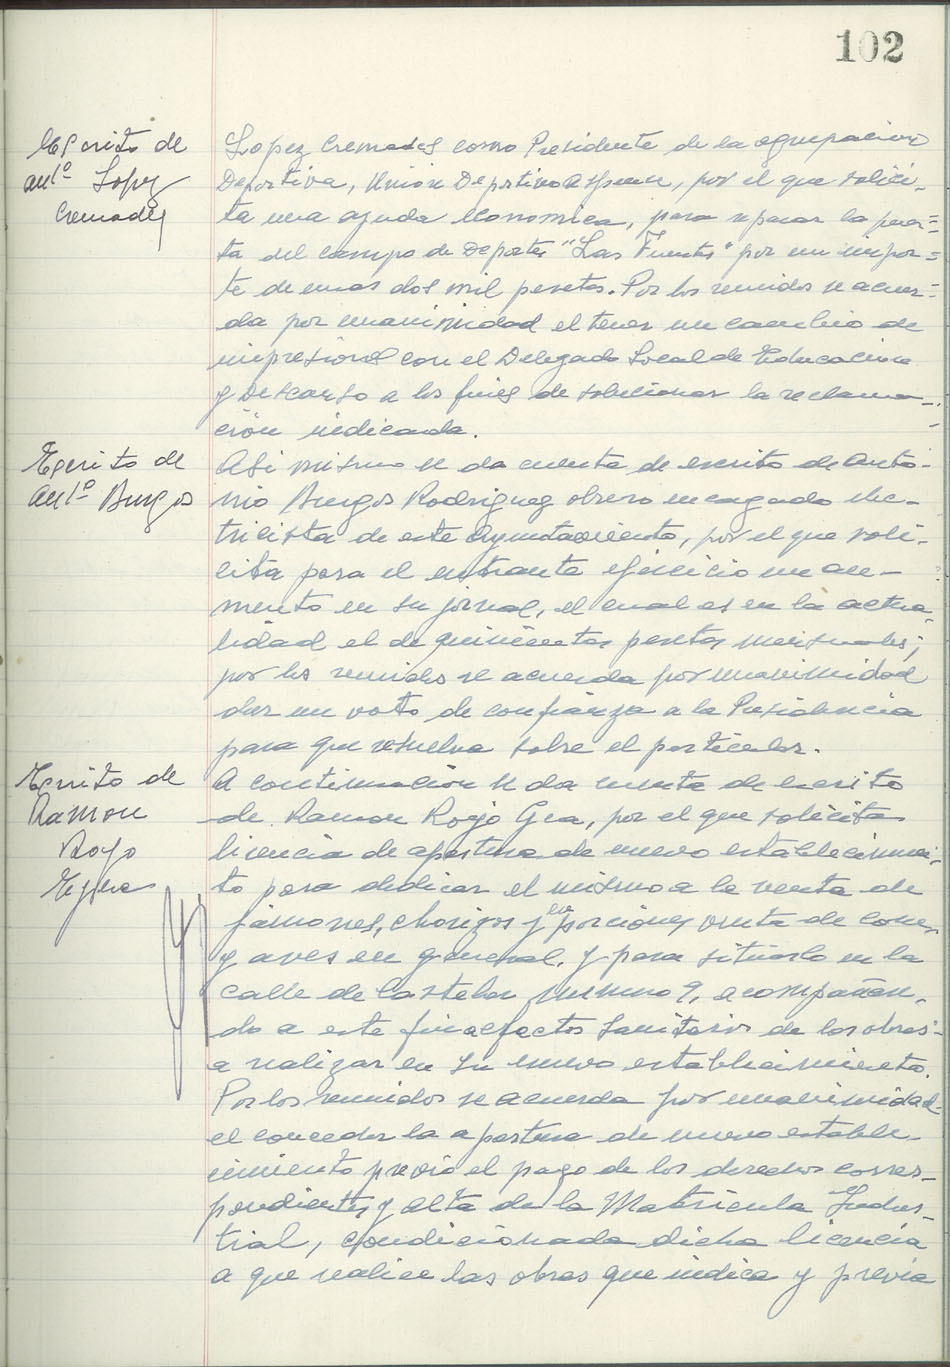 102
Escrito de
Antº Lopez
Cremades
Lopez Cremades como Presidente de la agrupación
Deportiva, Unión Deportiva Aspense, por el que solici-
ta una ayuda economica, para reparar la puer-
ta del campo de Deportes "Las Fuentes" por un impor-
te de unas dos mil pesetas. Por los reunidos se acuer-
da por unanimidad el tener un cambio de
impresiones con el Delegado Local de Educacion
y Descanso a los fines de solucionar la reclama-
ción indicada.
Escrito de
Antº Burgos
Asi mismo se da cuenta de escrito de Anto-
nio Burgos Rodriguez obrero encargado elec-
tricista de este Ayuntamiento, por el que soli-
cita para el entrante ejercicio un au-
mento en su jornal, el cual es en la actua-
lidad el de quinientas pesetas mensuales;
por los reunidos se acuerda por unanimidad
dar un voto de confianza a la Presidencia
para que resuelva sobre el particular.
Escrito de
Ramon
Rojo
A continuación se da cuenta de escrito
de Ramon Rojo Gea, por el que solicita
licencia de apertura de nuevo establecimien-
to para dedicar el mismo a la venta de
jamones, chorizos y en porciones venta de
y aves en general, y para situarlo en la
calle de Castelar numero 9, acompañan-
do a este fin efectos sanitarios de las obras
a realizar en su nuevo establecimiento.
Por los reunidos se acuerda por unanimidad
el conceder la apertura de nuevo estable-
cimiento previo el pago de los derechos corres-
pondientes y alta de la Matricula Indus-
trial, condicionada dicha licencia
a que realice las obras que indica y previa